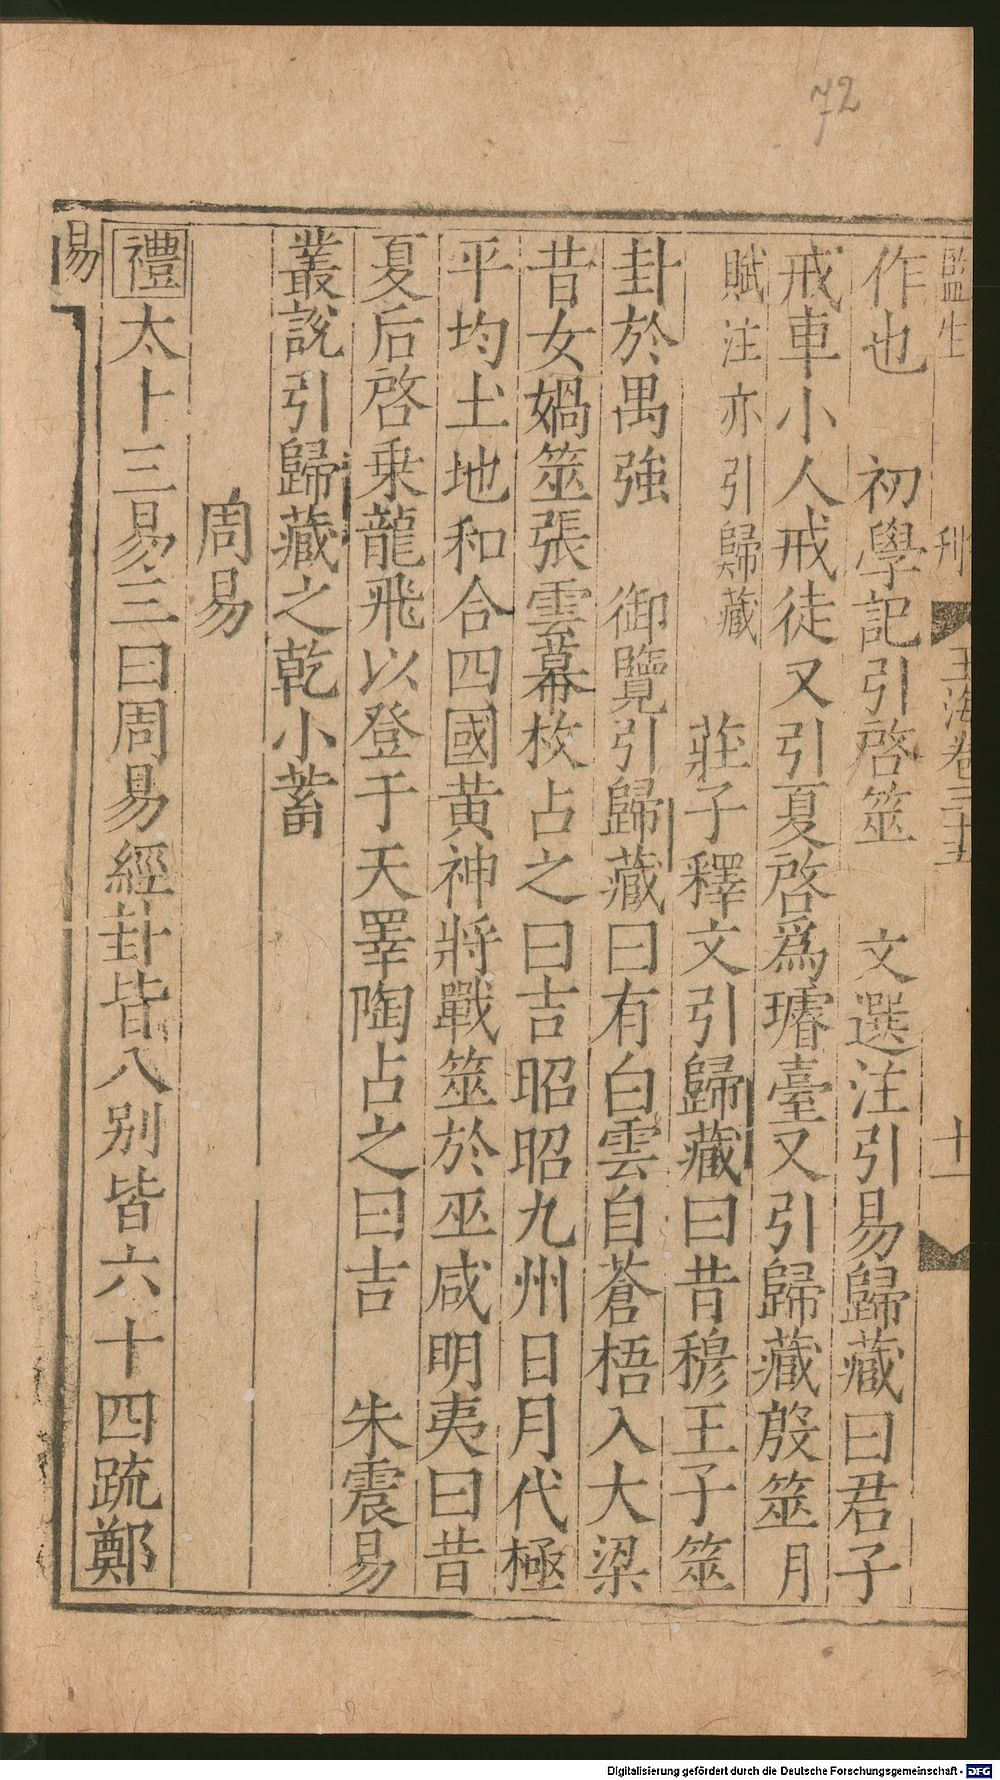 72
監生 刋 玉海卷三十五 十一
作也 初學記引啓筮 文選注引易歸藏曰君子
戒車小人戒徒又引夏啓爲璿臺又引歸藏殷筮月
賦注亦引歸藏 莊子釋文引歸藏曰昔穆王子筮
卦於禺強 御覽引歸藏曰有白雲自蒼梧入大梁
昔女媧筮張雲幕枚占之曰吉昭昭九州日月代極
平均土地和合四國黄神將戰筮於巫咸明夷曰昔
夏后啓乗龍飛以登于天睪陶占之曰吉 朱震易
叢說引歸藏之乾小蓄
周易
禮太卜三易三曰周易經卦皆八别皆六十四疏鄭
易
Digitalisierung gefördert durch die Deutsche Forschungsgemeinschaft - DFG